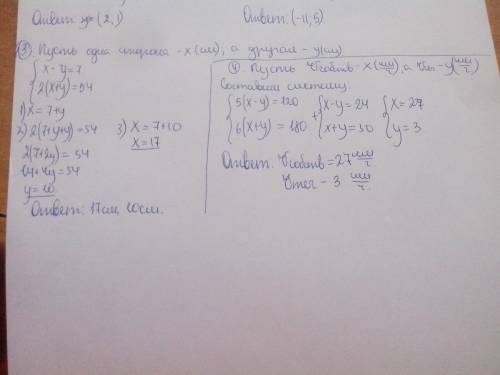 Ответ: (2;1)
Ответ: (-11;5)
③ Пусть одна сторона - x (см), а другая - y (см)
{ x - y = 7
2(x+y) = 54
1) x = 7+y
2) 2(7+y+y) = 54
2(7+2y) = 54
14+4y = 54
y = 10
3) x = 7+10
x = 17
Ответ: 17 см, 10 см.
④ Пусть Vсобств - x (км/ч), а Vтеч - y (км/ч)
Составим систему:
{ 5(x-y) = 120
6(x+y) = 180
+ { x-y = 24
x+y = 30
{ x = 27
y = 3
Ответ: Vсобств = 27 км/ч
Vтеч - 3 км/ч